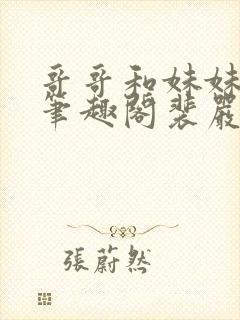 哥哥和妹妹
筆趣閣裴嚴
張蔚然